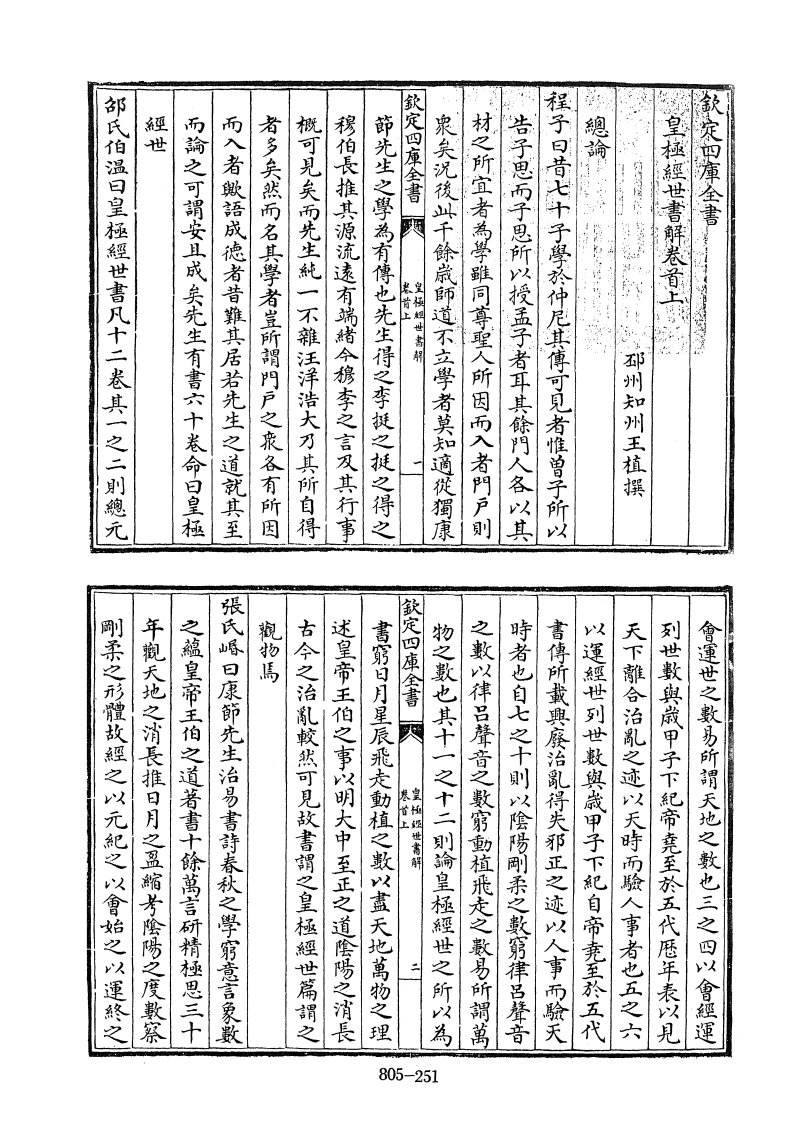 欽定四庫全書
皇極經世書解卷首上
邳州知州王植撰
總論
程子曰昔七十子學於仲尼其傳可見者惟曽子所以
告子思而子思所以授孟子者耳其餘門人各以其
材之所宜者為學雖同尊聖人所因而入者門戸則
衆矣況後此千餘歳師道不立學者莫知適從獨康
欽定四庫全書
皇極經世書解
卷首上
一
節先生之學為有傳也先生得之李挺之挺之得之
穆伯長推其源流逺有端緒今穆李之言及其行事
概可見矣而先生純一不雜汪洋浩大乃其所自得
者多矣然而名其學者豈所謂門戸之衆各有所因
而入者歟語成徳者昔難其居若先生之道就其至
而論之可謂安且成矣先生有書六十卷命曰皇極
經世
邵氏伯温曰皇極經世書凡十二卷其一之二則總元
會運世之數易所謂天地之數也三之四以會經運
列世數與歳甲子下紀帝堯至於五代歴年表以見
天下離合治亂之迹以天時而驗人事者也五之六
以運經世列世數與歳甲子下紀自帝堯至於五代
書傳所載興廢治亂得失邪正之迹以人事而驗天
時者也自七之十則以陰陽剛柔之數窮律吕聲音
之數以律吕聲音之數窮動植飛走之數易所謂萬
物之數也其十一之十二則論皇極經世之所以為
欽定四庫全書
皇極經世書解
卷首上
二
書窮日月星辰飛走動植之數以盡天地萬物之理
述皇帝王伯之事以明大中至正之道陰陽之消長
古今之治亂較然可見故書謂之皇極經世篇謂之
觀物焉
張氏㟭曰康節先生治易書詩春秋之學窮意言象數
之藴皇帝王伯之道著書十餘萬言研精極思三十
年觀天地之消長推日月之盈縮考陰陽之度數察
剛柔之形體故經之以元紀之以會始之以運終之
805-251